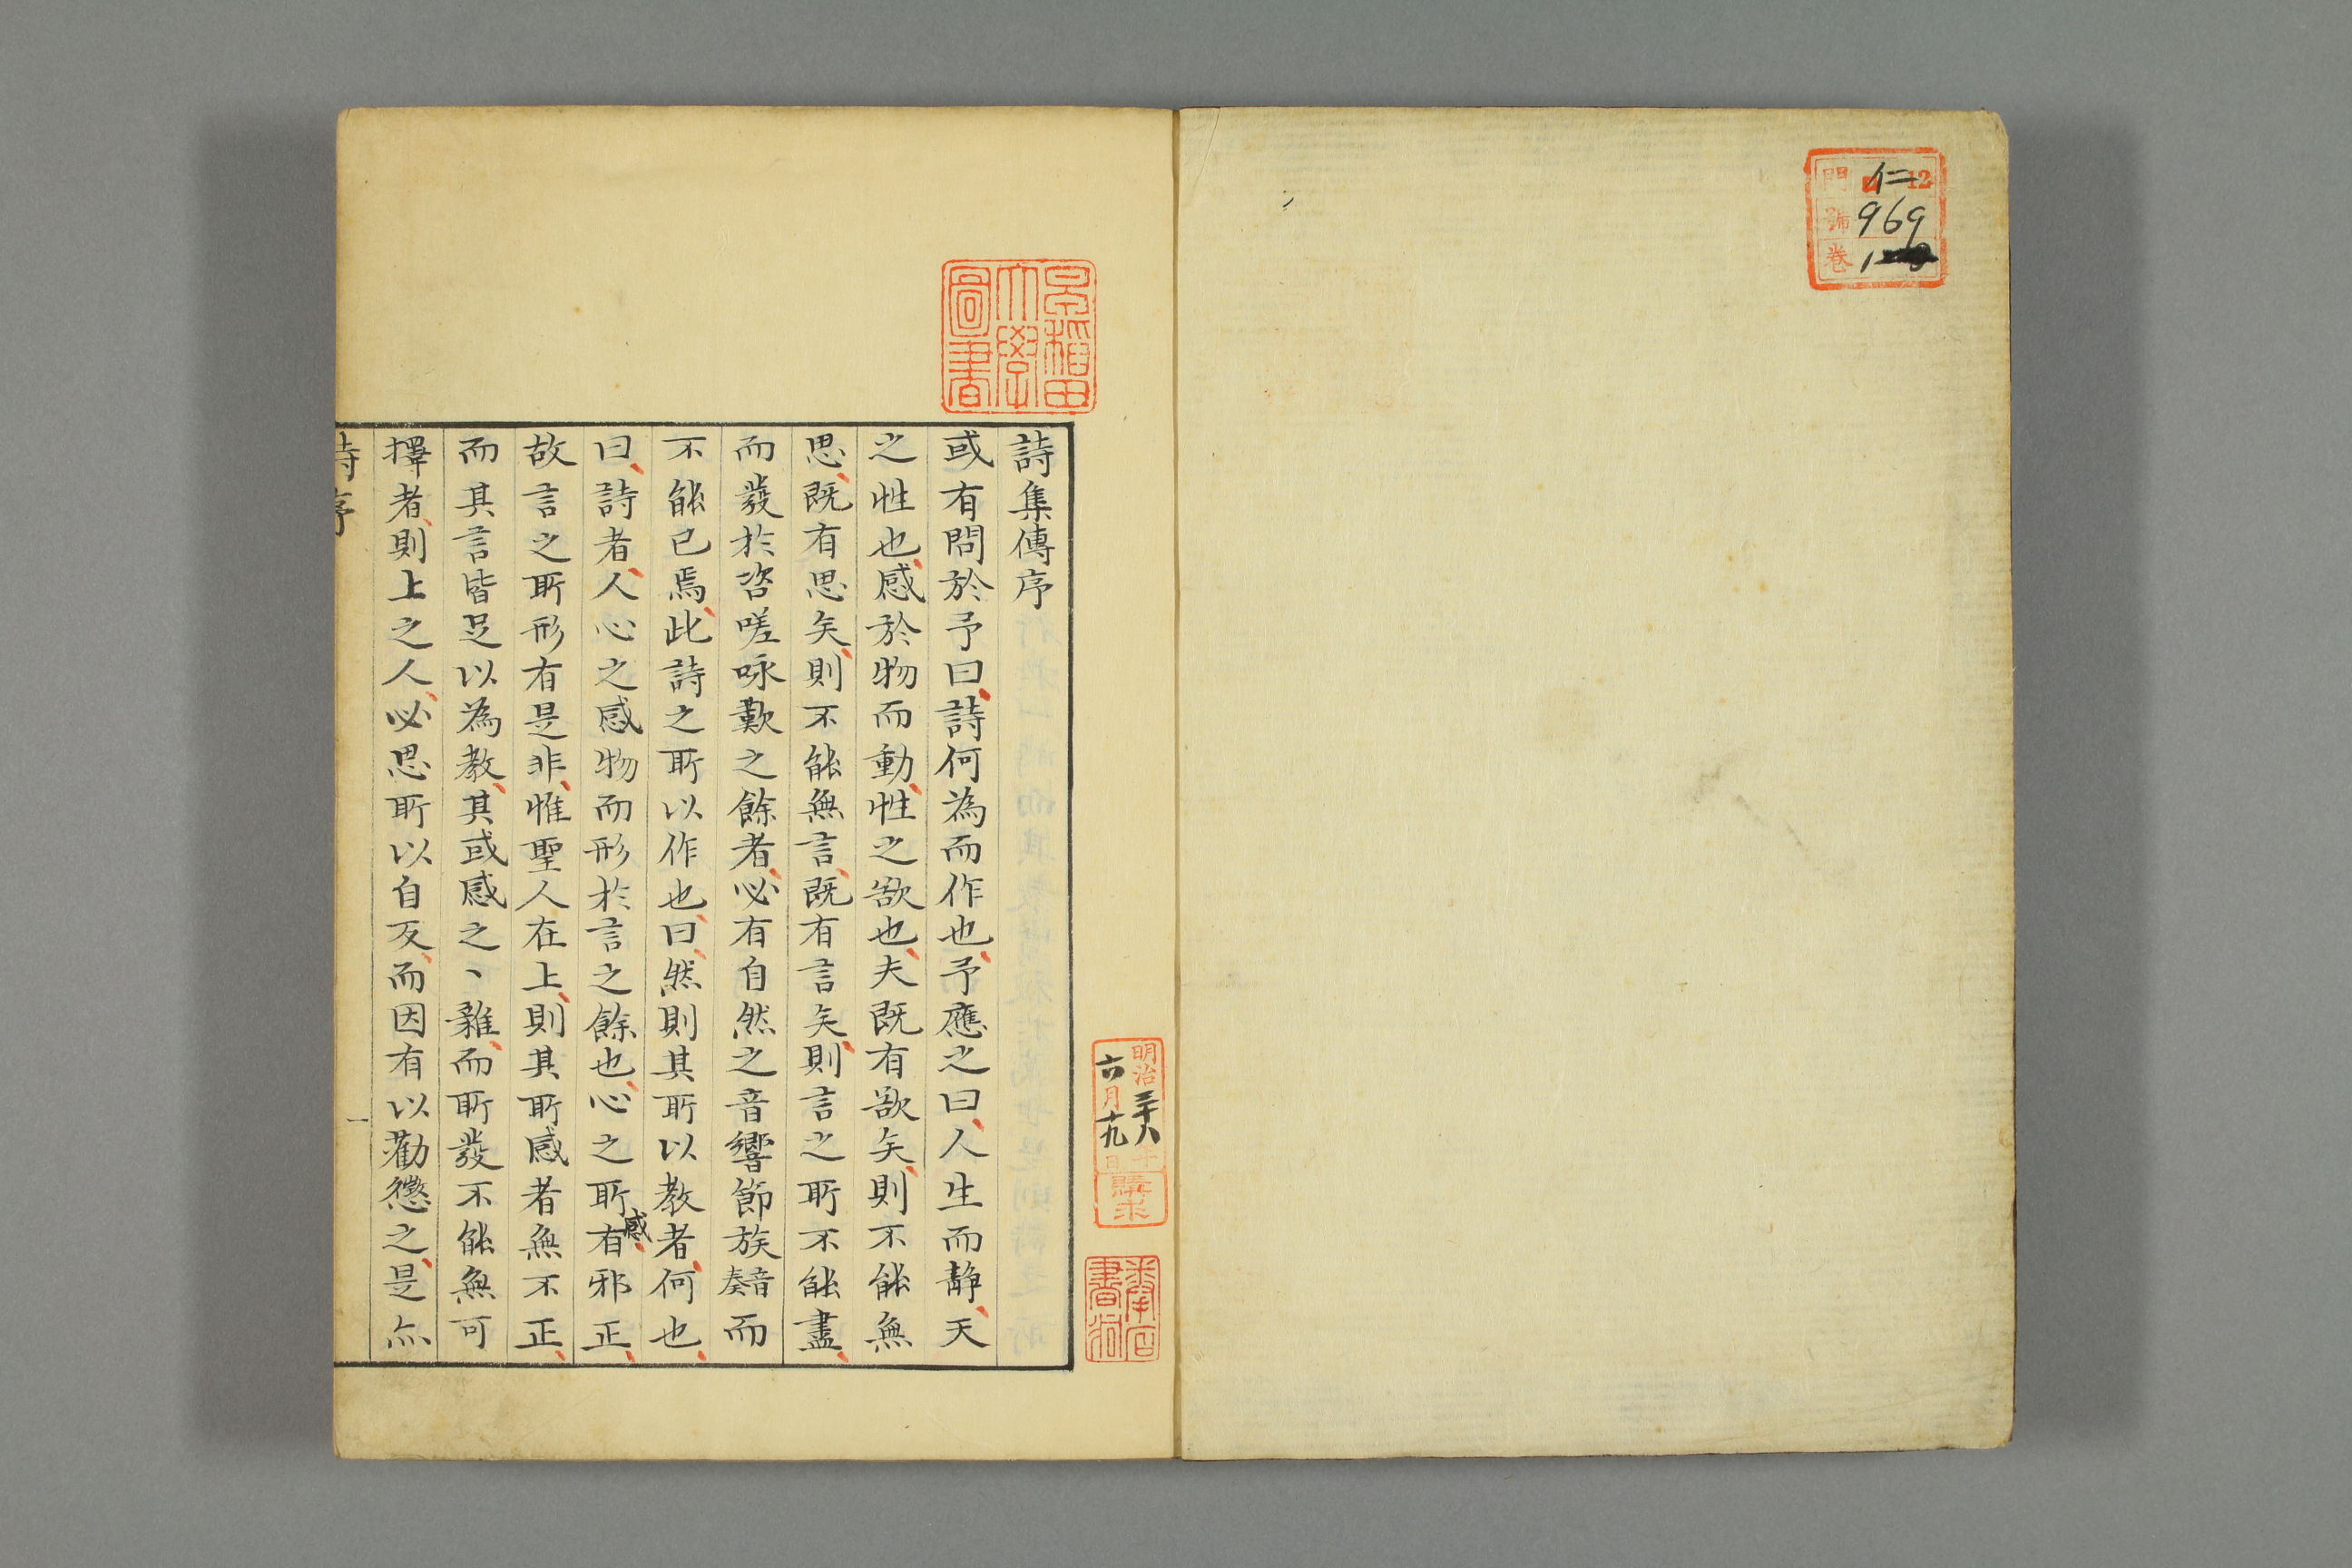 門 イ 12
號 969
卷 1
早稻田
大學
圖書
明治三十八年
六月十九日
購求
詩集傳序
或有問於予曰詩何為而作也予應之曰人生而静天
之性也感於物而動性之欲也夫既有欲矣則不能無
思既有思矣則不能無言既有言矣則言之所不能盡
而發於咨嗟咏歎之餘者必有自然之音響節族音奏而
不能已焉此詩之所以作也曰然則其所以教者何也
曰詩者人心之感物而形於言之餘也心之所感有邪正
故言之所形有是非惟聖人在上則其所感者無不正
而其言皆足以為教其或感之丶雜而所發不能無可
擇者則上之人必思所以自反而因有以勸懲之是亦
詩序
一